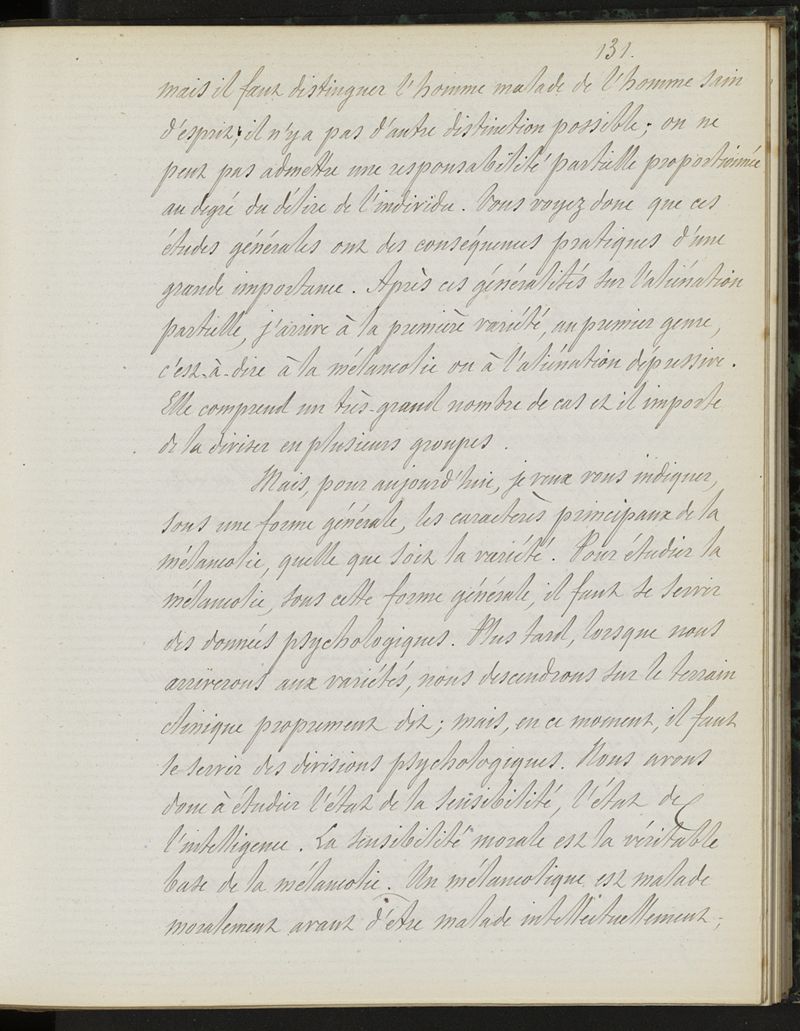 131.
mais il faut distinguer l'homme malade de l'homme sain
d'esprit; il n'y a pas d'autre distinction possible; on ne
peut pas admettre une responsabilité partielle proportionnée
au degré du délire de l'individu. Vous voyez donc que ces
études générales ont des conséquences pratiques d'une
grande importance. Après ces généralités sur l'aliénation
partielle, j'arrive à la première variété, au premier genre,
c'est-à-dire à la mélancolie ou à l'aliénation dépressive.
Elle comprend un très-grand nombre de cas et il importe
de la diviser en plusieurs groupes.
Mais, pour aujourd'hui, je veux vous indiquer,
sous une forme générale, les caractères principaux de la
mélancolie, quelle que soit la variété. Pour étudier la
mélancolie, sous cette forme générale, il faut se servir
des données psychologiques. Plus tard, lorsque nous
arriverons aux variétés, nous descendrons sur le terrain
clinique proprement dit; mais, en ce moment, il faut
se servir des divisions psychologiques. Nous avons
donc à étudier l'état de la sensibilité, l'état de
l'intelligence. La sensibilité morale est la véritable
base de la mélancolie. Un mélancolique est malade
moralement avant d'être malade intellectuellement;